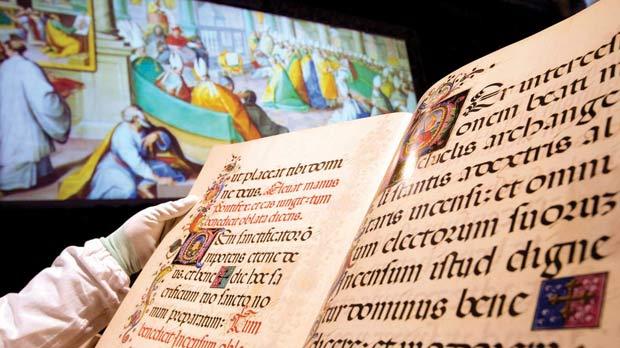 ut placeat tibi domi
ne deus. Eleuat manus
pontifex: et eas iungit: tum
benedicit oblata dicens.
Veni sanctificator o
mnipotens eterne de
us: et bene dic hoc sa
crificium tuo sancto no
mini preparatum: Tum
benedicit incensum dicens
Per intercess
onem beati mi
chaelis archange
li stantis a dextris al
taris incensi: et omni
um electorum suoruz
incensum istud digne
tur dominus bene
dicere: et